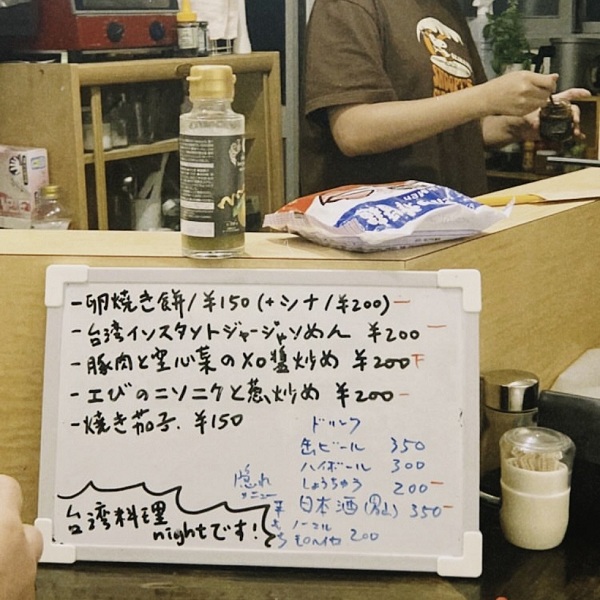 - 卵焼き餅/¥150 (+シナ/¥200) -
- 台湾インスタントジャージャソめん ¥200 -
- 豚肉と空心菜のXO醬炒め ¥200 F
- エびのニソニクと葱炒め ¥200 -
- 焼き茄子. ¥150
ドリンク
缶ビール 350
ハイボール 300
しょうちゅう 200 -
日本酒 350 -
隠れ
メニュー
ノーマル
200
台湾料理
nightです!